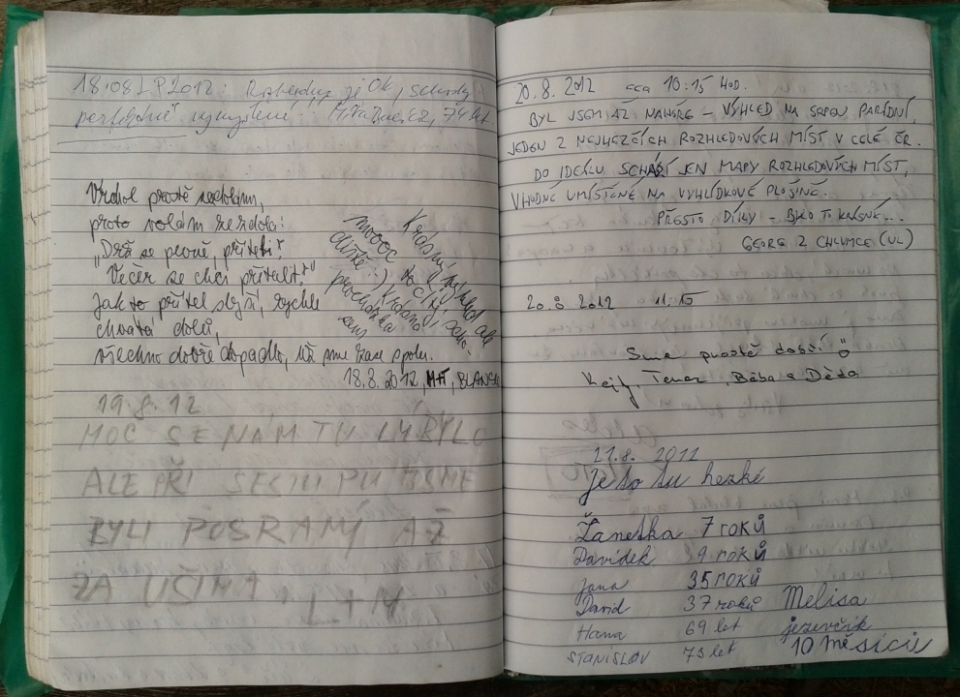 18.08.LP2012: Rozhledna je OK, schody
perfektně vymyšlené 74 let
Vrchol prostě nezdolám,
proto volám zezdola:
„Drž se pevně, příteli!
Večer se chci přitulit!“
Jak to přítel slyší, rychle
chvátá dolů,
všechno dobře dopadlo, už sme zase spolu.
18.8.2012, BLANSKO
Krásný výhled ale
moooc točí
duše :) Krásná
procházka
19.8.12
MOC SE NÁM TU LÍBYLO
ALE PŘI SESTUPU JSME
BYLI POSRANÝ AŽ
ZA UŠIMA, L+M
20.8.2012 cca 10.15 HOD.
BYL JSEM AŽ NAHOŘE – VÝHLED NA SOPEM PARÁDNÍ,
JEDEN Z NEJHEZČÍCH ROZHLEDOVÝCH MÍST V CELÉ ČR.
DO IDEÁLU SCHÁZÍ JEN MAPY ROZHLEDOVÝCH MÍST,
VHODNĚ UMÍSTĚNÉ NA VYHLÍDKOVÉ PLOŠINĚ.
PŘESTO DÍKY – BYLO TO KRÁSNÉ...
GEORG Z CHLUMCE (UL)
20.8.2012 11.15
Sme prostě dobří
Bába a Děda
21.8. 2012
Je to tu hezké
Žanetka 7 roků
Davídek 9 roků
Jana 35 roků
David 37 roků Melisa
Hana 69 let jezevčík
STANISLAV 73 let 10 měsíců